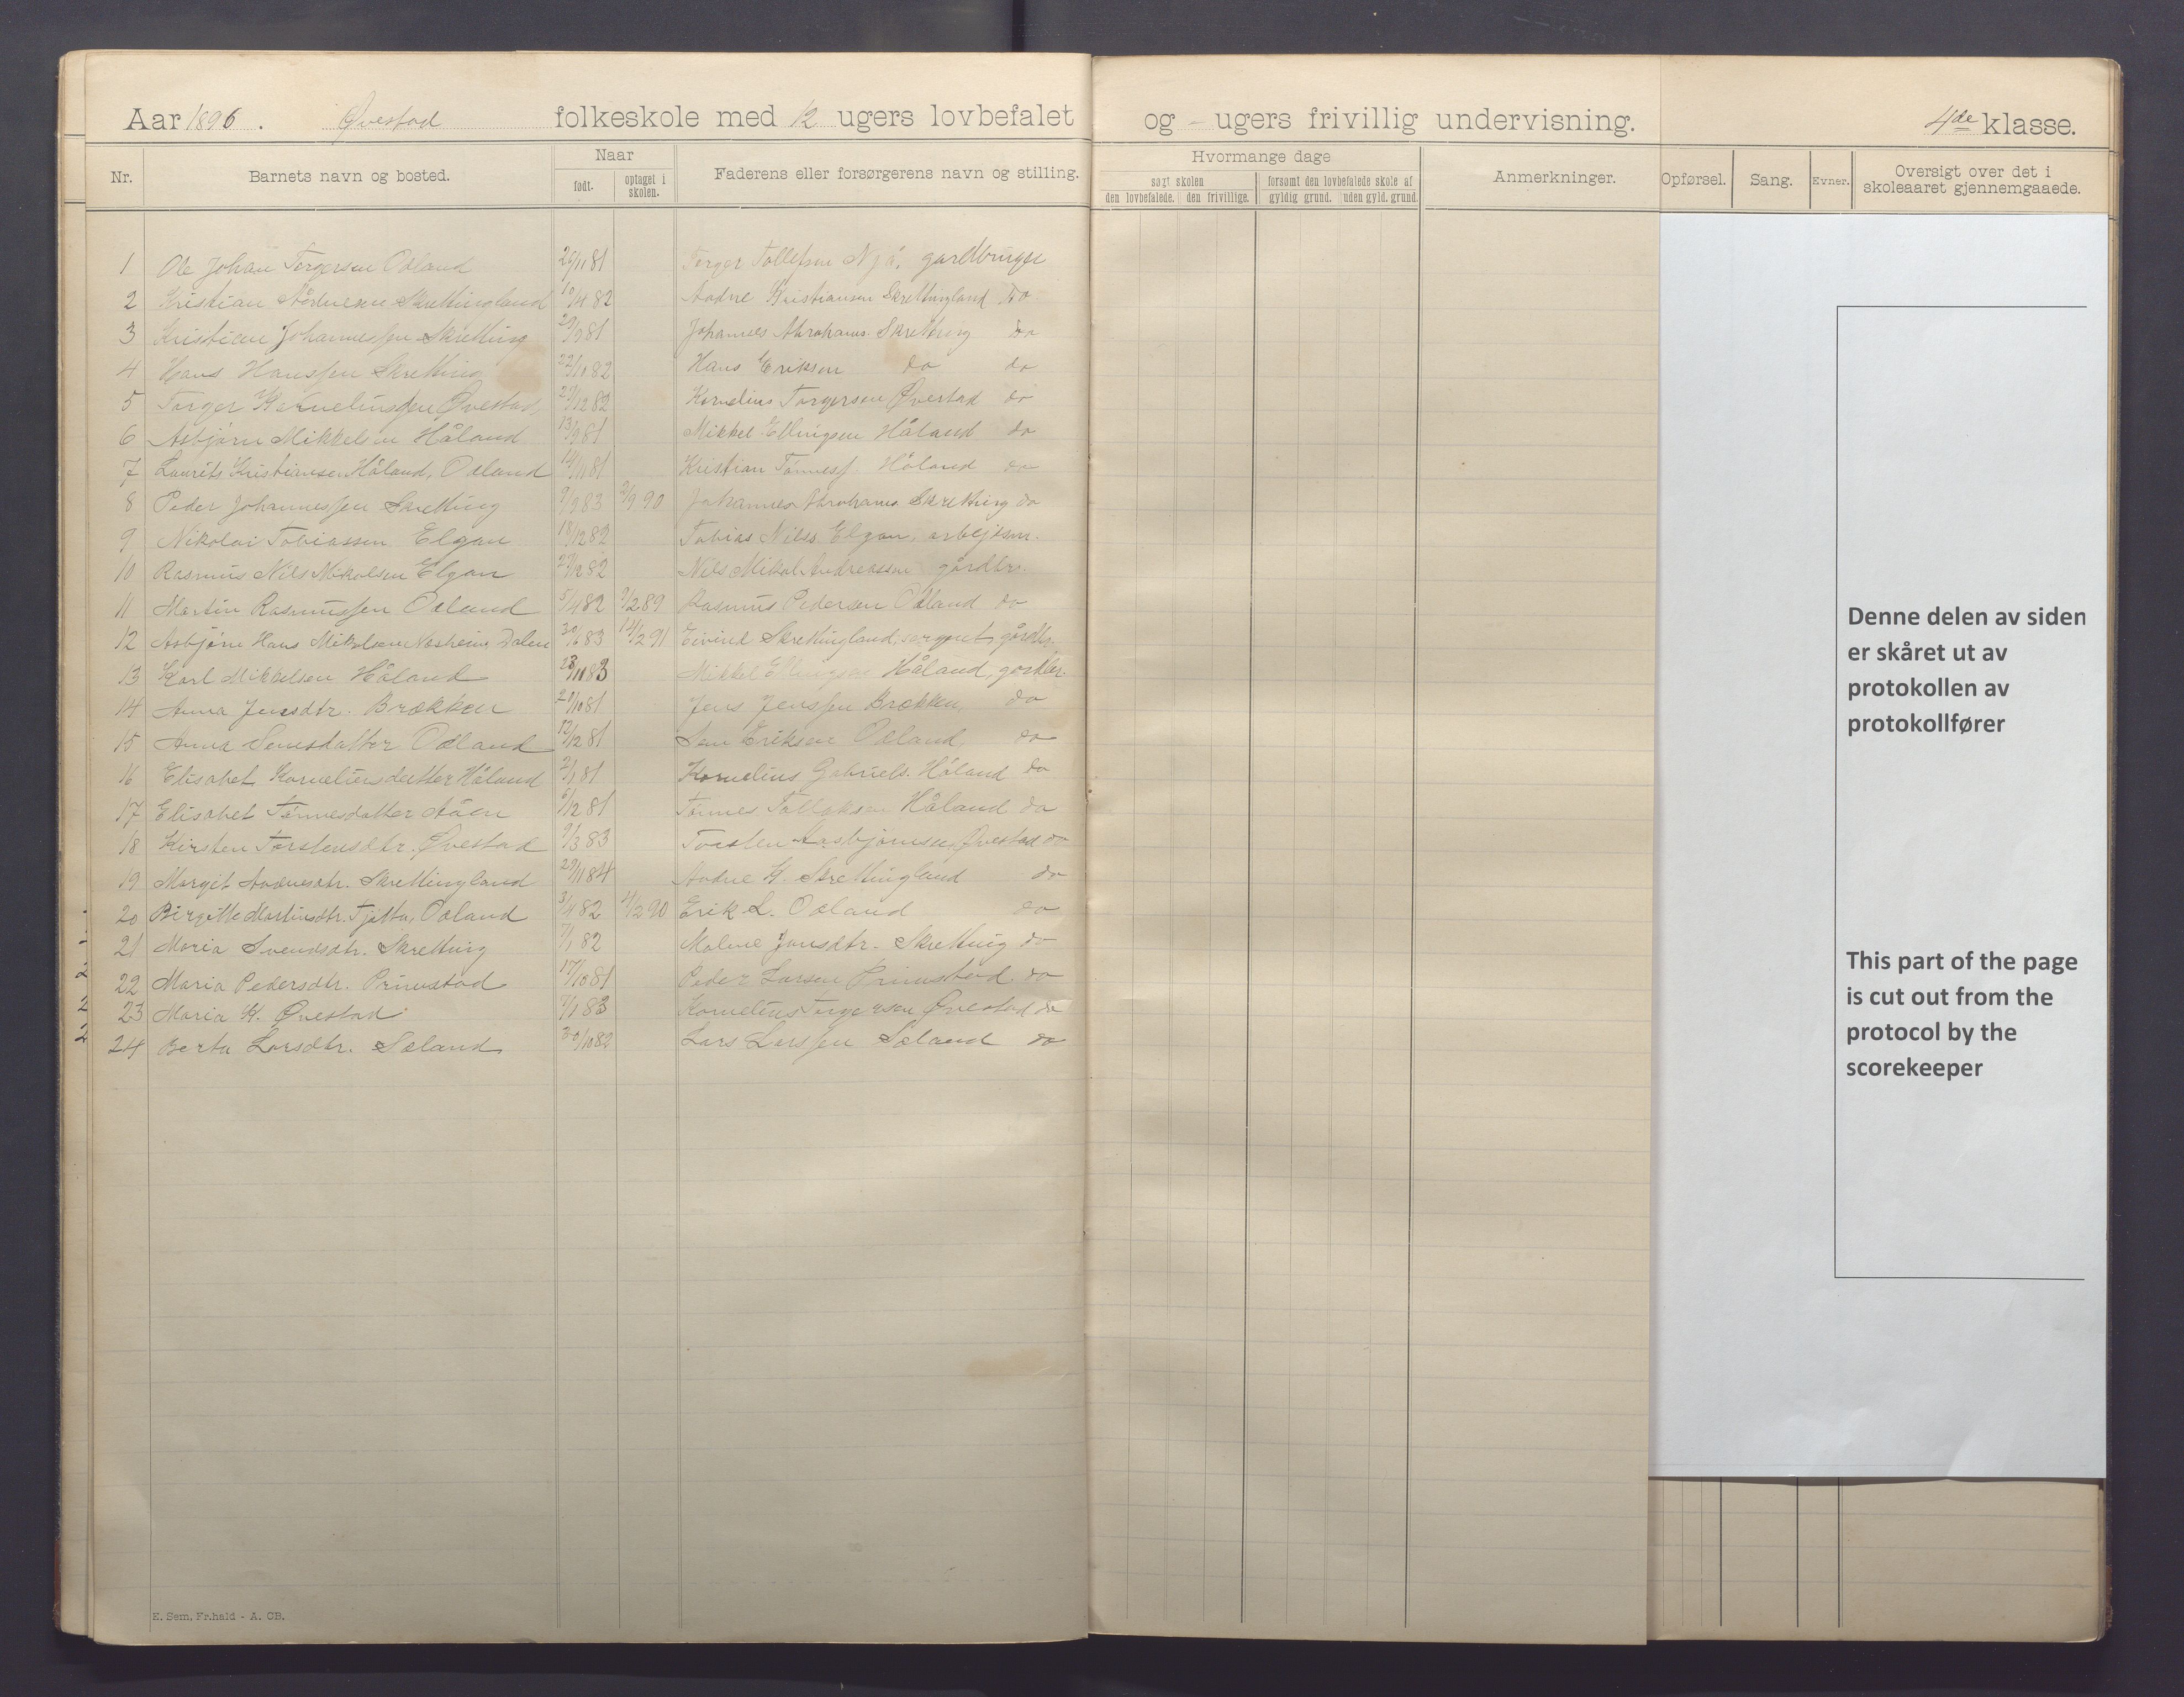 Aar 1896. Øvestad folkeskole med 12 ugers lovbefalet og - ugers frivillig undervisning. 4de klasse.
Nr. Barnets navn og bosted. Naar født. optaget i skolen. Faderens eller forsørgerens navn og stilling. Hvormange dage søgt skolen den lovbefalede. den frivillige. forsømt den lovbefalede skole af gyldig grund. uden gyld. grund. Anmerkninger. Opførsel. Sang. Evner. Oversigt over det i skoleaaret gjennemgaaede.
1 Ole Johan Torgersen Odland 29/11 81 Torger Tollefsen Njå, gardbruger
2 Kristian Ådnesen Skrettingland 10/4 82 Aadne Kristiansen Skrettingland do
3 Kristian Johannessen Skretting 29/9 81 Johannes Abrahams. Skretting do
4 Hans Hanssen Skretting 22/10 82 Hans Eriksen do do
5 Torger Korneliussen Øvestad, 29/12 82 Kornelius Torgersen Øvestad do
6 Asbjørn Mikkelsen Håland 13/9 81 Mikkel Ellingsen Håland do
7 Laurits Kristiansen Håland, Odland 14/11 81 Kristian Tønness. Håland do
8 Peder Johannessen Skretting 9/9 83 2/9 90 Johannes Abrahams. Skretting do
9 Nikolai Tobiassen Elgan 18/12 82 Tobias Nils. Elgan, arbejdsm.
10 Rasmus Nils Mikalsen Elgan 27/12 82 Nils Mikal Andreassen gårdbr.
11 Martin Rasmussen Odland 5/4 82 9/2 89 Rasmus Pedersen Odland do
12 Asbjørn Hans Mikalsen Næsheim, Dalen 30/6 83 14/2 91 Eivind Skrettingland, sergent, gårdbr.
13 Karl Mikkelsen Håland 28/11 83 Mikkel Ellingsen Håland, gårdbr.
14 Anna Jensdtr. Brækken 29/10 81 Jens Jenssen Brækken, do
15 Anna Semsdatter Odland 12/12 81 Sem Eriksen Odland, do
16 Elisabet Korneliusdatter Håland 2/1 81 Kornelius Gabriels. Håland do
17 Elisabet Tønnesdatter Åen 6/12 81 Tønnes Tollaksen Håland do
18 Kirsten Torstensdtr. Øvestad 9/3 83 Torsten Aasbjørnsen Øvestad do
19 Margit Aadnesdtr. Skrettingland 29/11 84 Aadne K. Skrettingland do
20 Birgitte Martinsdtr. Tjøtta, Odland 3/4 82 4/2 90 Erik L. Odland do
21 Maria Svendsdtr. Skretting 7/1 82 Malene Jonsdtr. Skretting do
22 Maria Pedersdtr. Prinvstad 17/10 81 Peder Larsen Prinvstad do
23 Maria K. Øvestad 1/1 83 Kornelius Torgersen Øvestad do
24 Berta Larsdtr. Søland 30/10 82 Lars Larssen Søland do
Denne delen av siden
er skåret ut av
protokollen av
protokollfører
This part of the page
is cut out from the
protocol by the
scorekeeper
E. Sem, Fr.hald - A. CB.